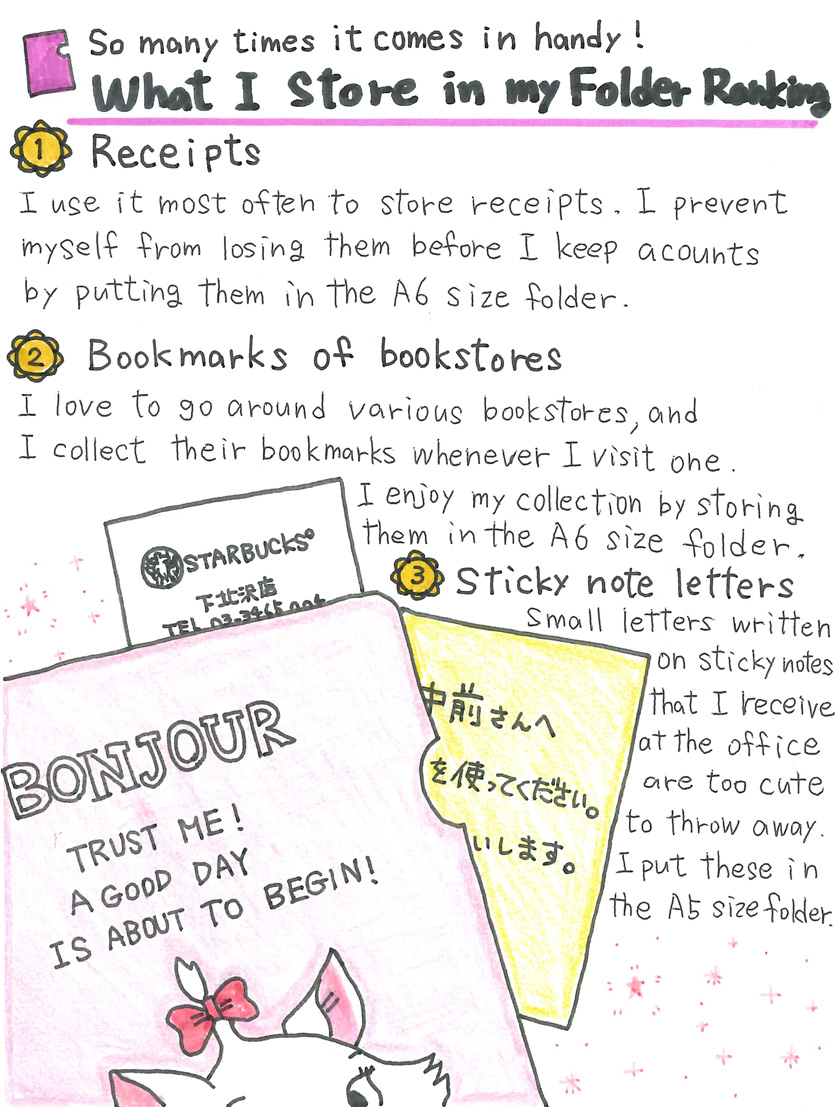 So many times it comes in handy!
What I Store in my Folder Ranking
1 Receipts
I use it most often to store receipts. I prevent
myself from losing them before I keep acounts
by putting them in the A6 size folder.
2 Bookmarks of bookstores
I love to go around various bookstores, and
I collect their bookmarks whenever I visit one.
I enjoy my collection by storing
them in the A6 size folder.
STARBUCKS®
下北沢店
TEL 03-3465
3 Sticky note letters
Small letters written
on sticky notes
that I receive
at the office
are too cute
to throw away.
I put these in
the A5 size folder.
中前さんへ
を使ってください。
いします。
BONJOUR
TRUST ME!
A GOOD DAY
IS ABOUT TO BEGIN!